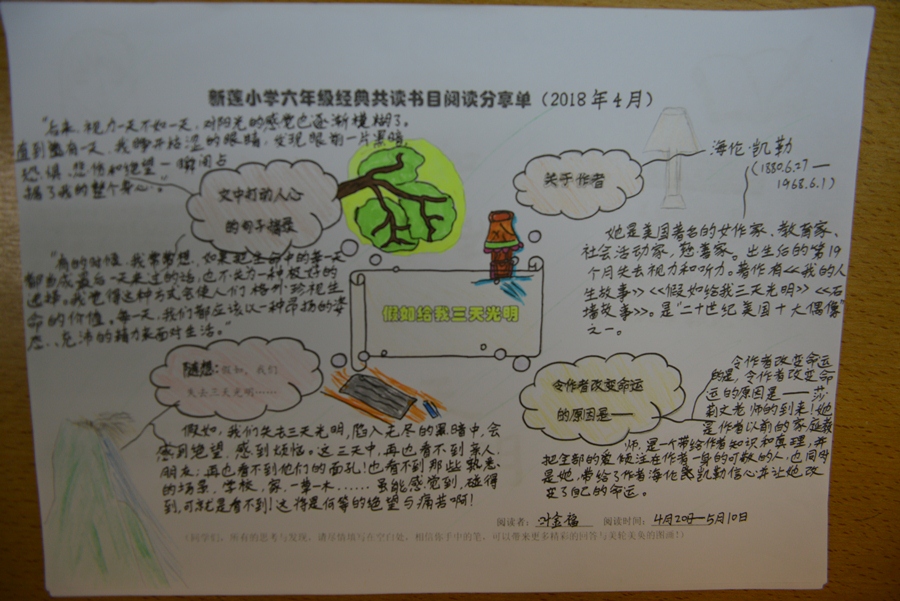 新莲小学六年级经典共读书目阅读分享单（2018年4月）
"后来，视力一天不如一天，对阳光的感觉也逐渐模糊了。
直到有一天，我睁开枯涩的眼睛，发现眼前一片黑暗，
恐惧、悲伤和绝望一瞬间占
据了我的整个身心。"
文中打动人心
的句子摘录
"有的时候，我常常想，如果把生命中的每一天
都当成最后一天来过的话，也不失为一种极好的
选择。我觉得这种方式会使人们格外珍视生
命的价值。每一天，我们都应该以一种昂扬的姿
态、充沛的精力来面对生活。"
关于作者
海伦·凯勒
(1880.6.27—
1968.6.1)
她是美国著名的女作家、教育家、
社会活动家，慈善家。出生后的第19
个月失去视力和听力。著作有<<我的人
生故事>><<假如给我三天光明>><<石
墙故事>>。是"二十世纪美国十大偶像"
之一。
假如给我三天光明
随想：假如，我们
失去三天光明……
假如，我们失去三天光明，陷入无尽的黑暗中，会
感到绝望，感到烦恼。这三天中，再也看不到亲人、
朋友；再也看不到他们的面孔！也看不到那些熟悉
的场景，学校，家，一草一木……虽能感觉到，碰得
到，可就是看不到！这将是何等的绝望与痛苦啊！
令作者改变命运
的原因是——
令作者改变命运
的是，令作者改变命
运的原因是——莎
莉文老师的到来！她
是作者以前的家庭教
师，是一个带给作者知识和真理，并
把全部的爱倾注在作者一身的可敬的人，也同时
是她，带给了作者海伦·凯勒信心并让她改
变了自己的命运。
阅读者： 阅读时间：4月20日—5月10日
（同学们，所有的思考与发现，请尽情填写在空白处，相信你手中的笔，可以带来更多精彩的回答与美轮美奂的图画！）